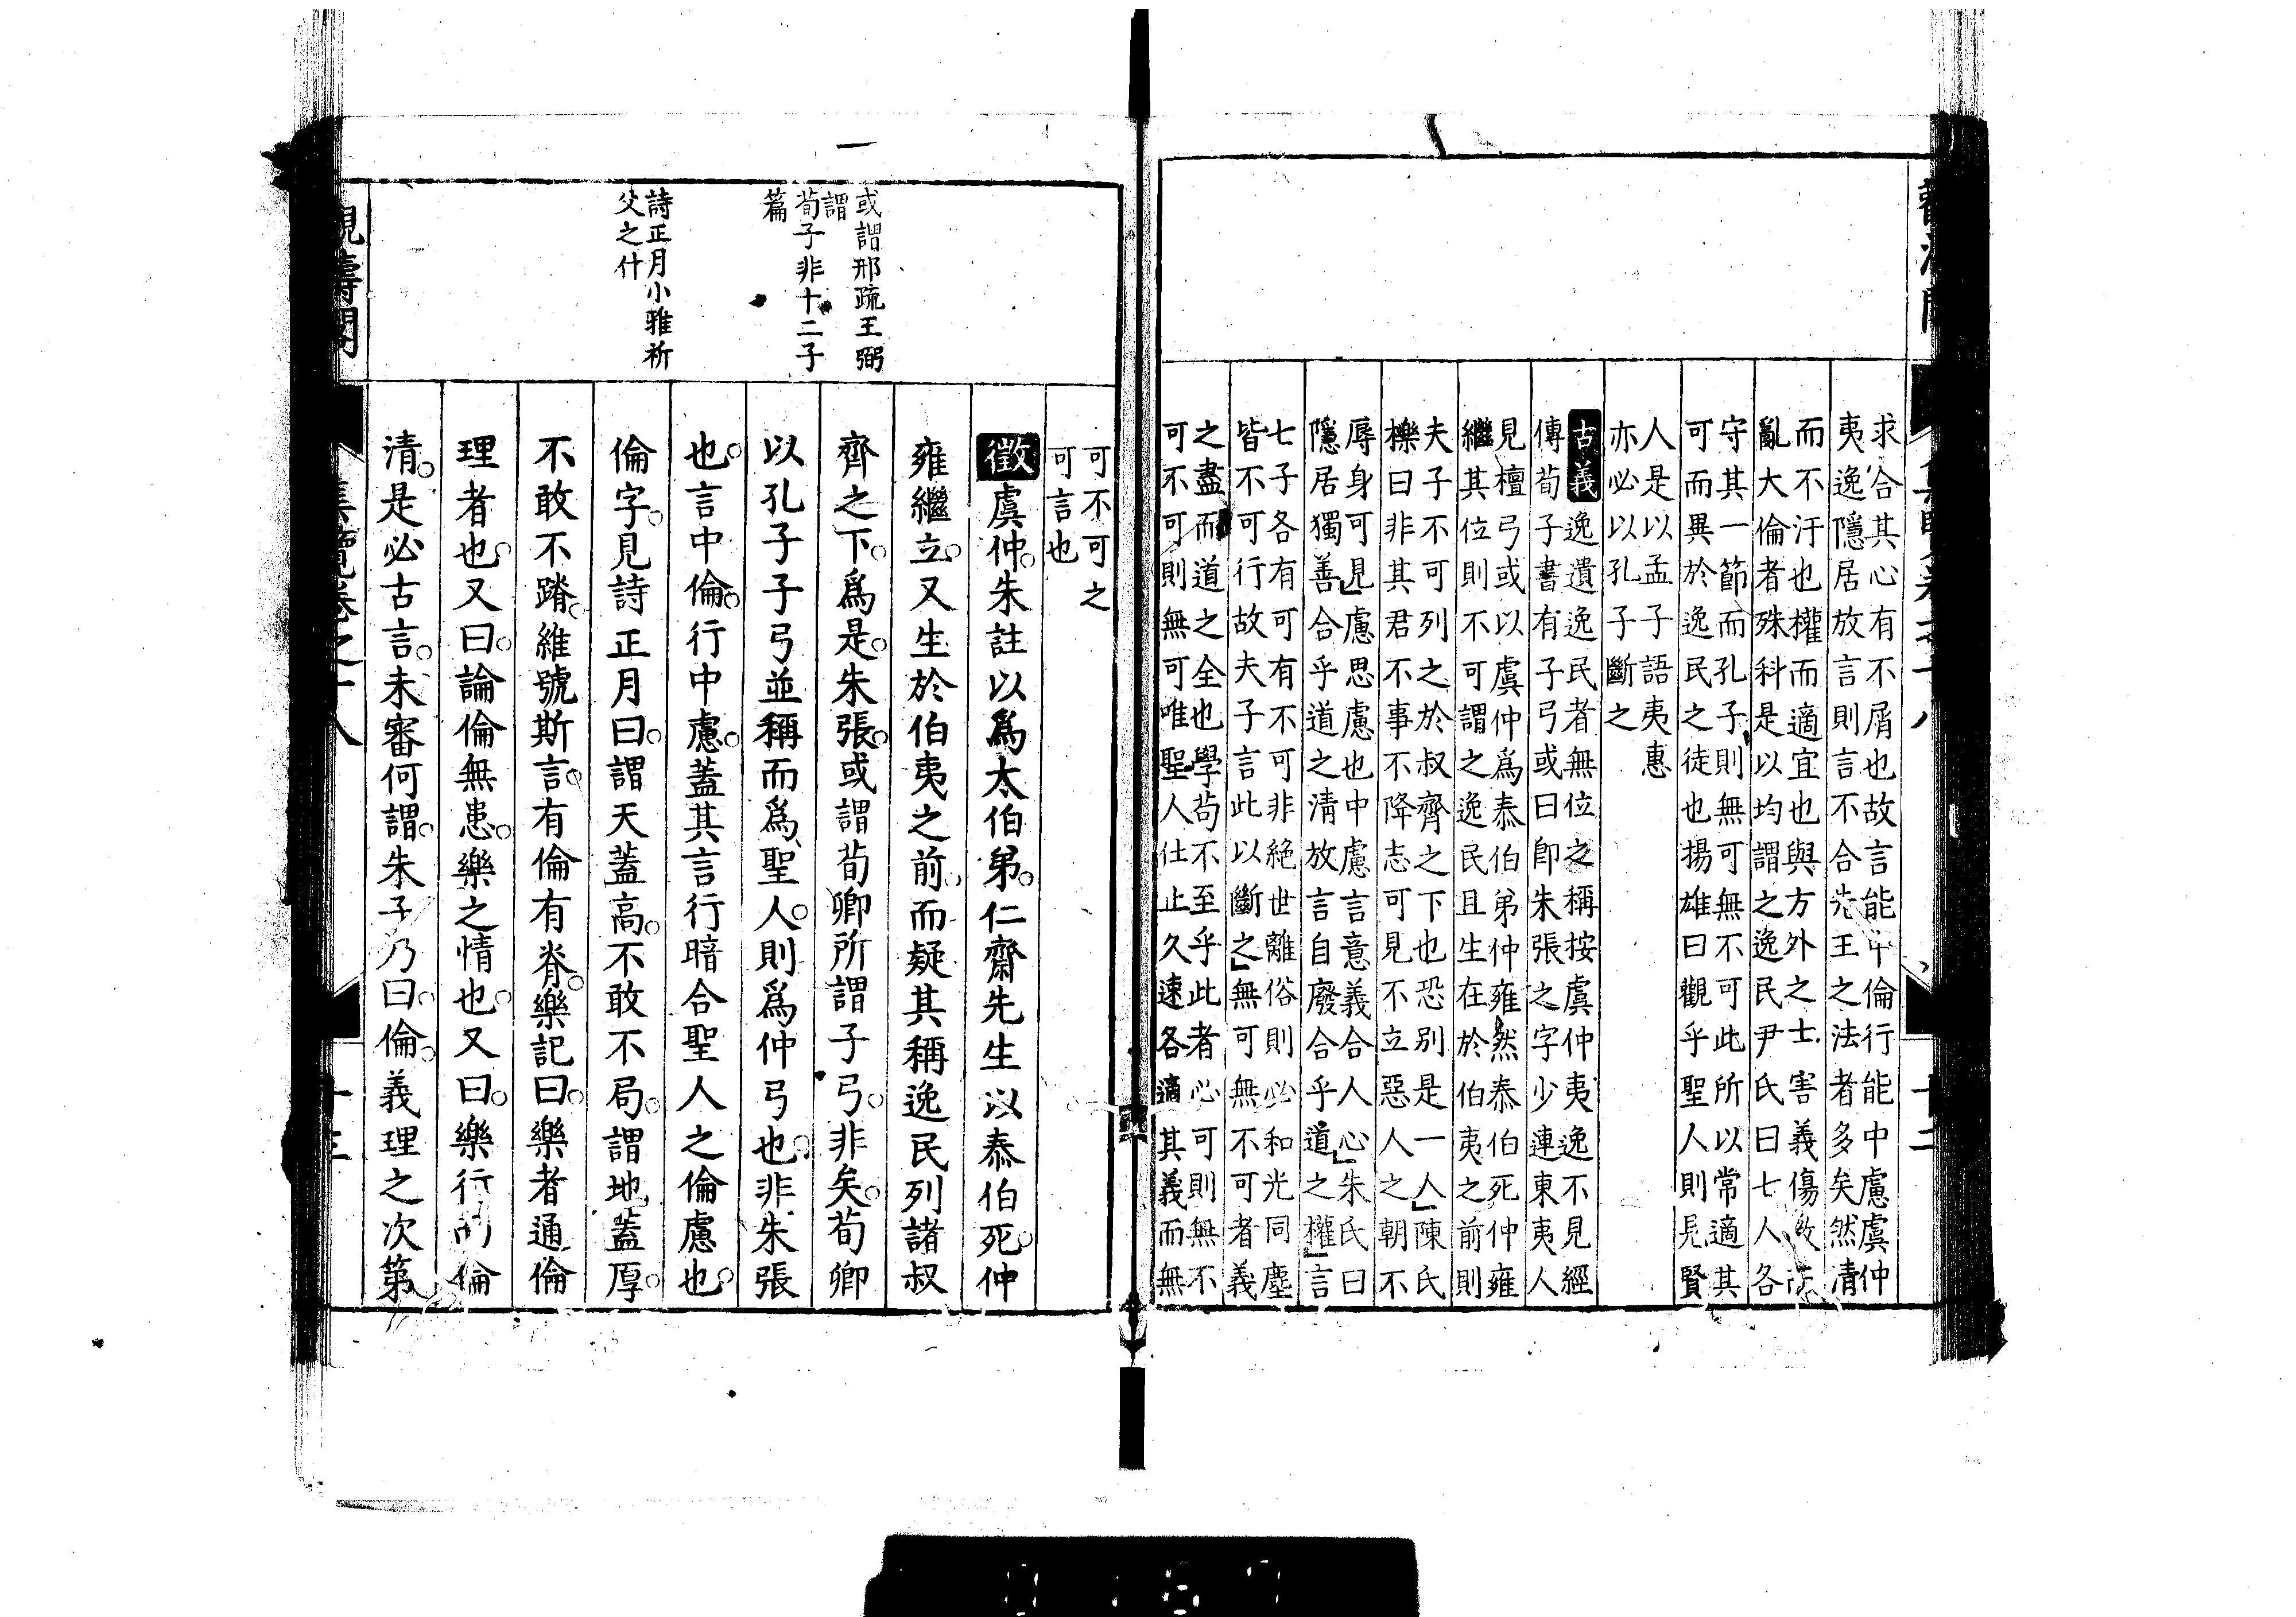 求合其心有不屑也故言能中倫行能中慮虞仲
夷逸隱居放言則言不合先王之法者多矣然清
而不汙也權而適宜也與方外之士害義傷教而
亂大倫者殊科是以均謂之逸民尹氏曰七人各
守其一節而孔子則無可無不可此所以常適其
可而異於逸民之徒也揚雄曰觀乎聖人則見賢
人是以孟子語夷惠
亦必以孔子斷之
古義逸遺逸民者無位之稱按虞仲夷逸不見經
傳荀子書有子弓或曰卽朱張之字少連東夷人
見檀弓或以虞仲爲泰伯弟仲雍然泰伯死仲雍
繼其位則不可謂之逸民且生在於伯夷之前則
夫子不可列之於叔齊之下也恐別是一人陳氏
櫟曰非其君不事不降志可見不立惡人之朝不
辱身可見慮思慮也中慮言意義合人心朱氏曰
隱居獨善合乎道之清放言自廢合乎道之權言
七子各有可有不可非絶世離俗則必和光同塵
皆不可行故夫子言此以斷之無可無不可者義
之盡而道之全也學苟不至乎此者必可則無不
可不可則無可唯聖人仕止久速各適其義而無
可不可之
可言也
徵虞仲朱註以爲太伯弟仁齋先生以泰伯死仲
雍繼立又生於伯夷之前而疑其稱逸民列諸叔
齊之下爲是朱張或謂荀卿所謂子弓非矣荀卿
以孔子子弓並稱而爲聖人則爲仲弓也非朱張
也言中倫行中慮蓋其言行暗合聖人之倫慮也
倫字見詩正月曰謂天蓋高不敢不局謂地蓋厚
不敢不蹐維號斯言有倫有脊樂記曰樂者通倫
理者也又曰論倫無患樂之情也又曰樂行而倫
清是必古言未審何謂朱子乃曰倫義理之次第
或謂邢疏王弼
謂
荀子非十二子
篇
詩正月小雅祈
父之什
觀濤閣
集覽卷之十八
十三